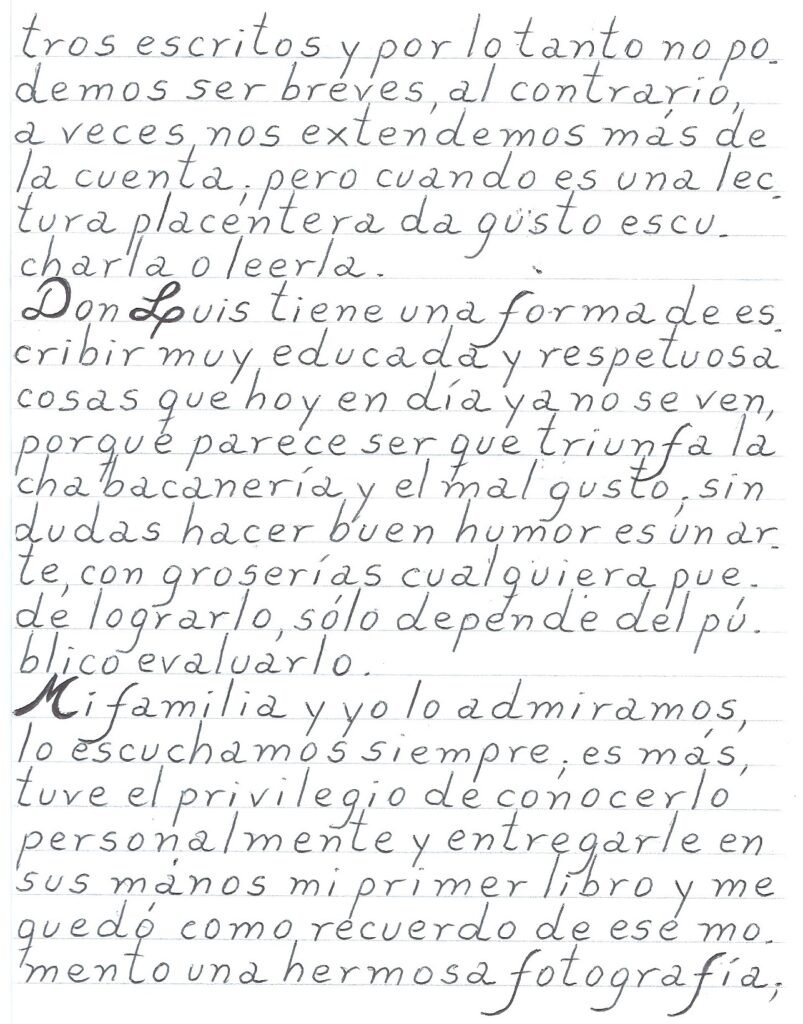 tros escritos y por lo tanto no po-
demos ser breves, al contrario,
a veces nos extendemos más de
la cuenta; pero cuando es una lec-
tura placentera da gusto escu-
charla o leerla.
Don Luis tiene una forma de es-
cribir muy educada y respetuosa
cosas que hoy en día ya no se ven,
porque parece ser que triunfa la
chabacanería y el mal gusto; sin
dudas hacer buen humor es un ar-
te, con groserías cualquiera pue-
de lograrlo, sólo depende del pú-
blico evaluarlo.
Mi familia y yo lo admiramos,
lo escuchamos siempre; es más,
tuve el privilegio de conocerlo
personalmente y entregarle en
sus manos mi primer libro y me
quedó como recuerdo de ese mo-
mento una hermosa fotografía;